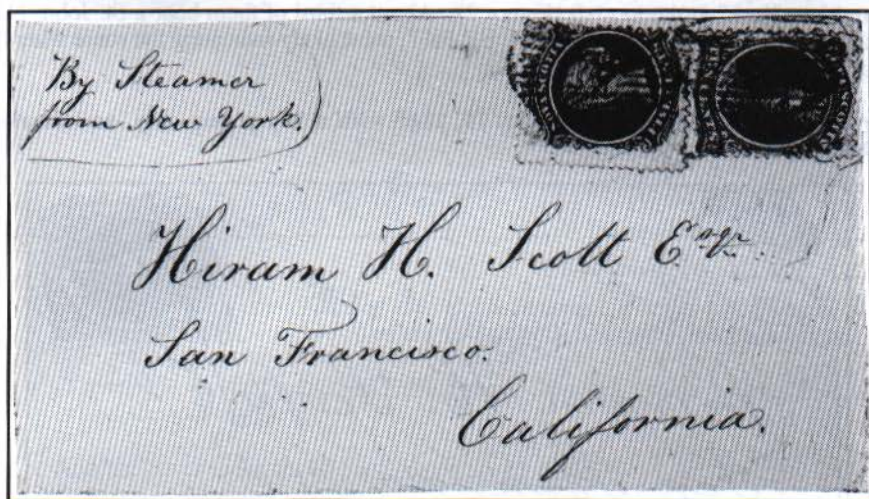 By Steamer
from New York.
Hiram H. Scott Esqr.
San Francisco.
California.